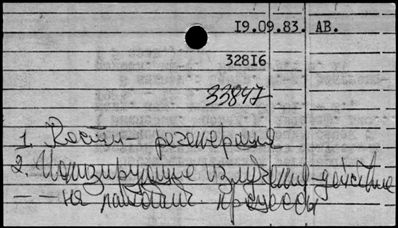 19.09.83. АВ.
32816
33847
1. Кости - регенерация
2. Ионизирующие излучения - действие
— — на патологич. процессы